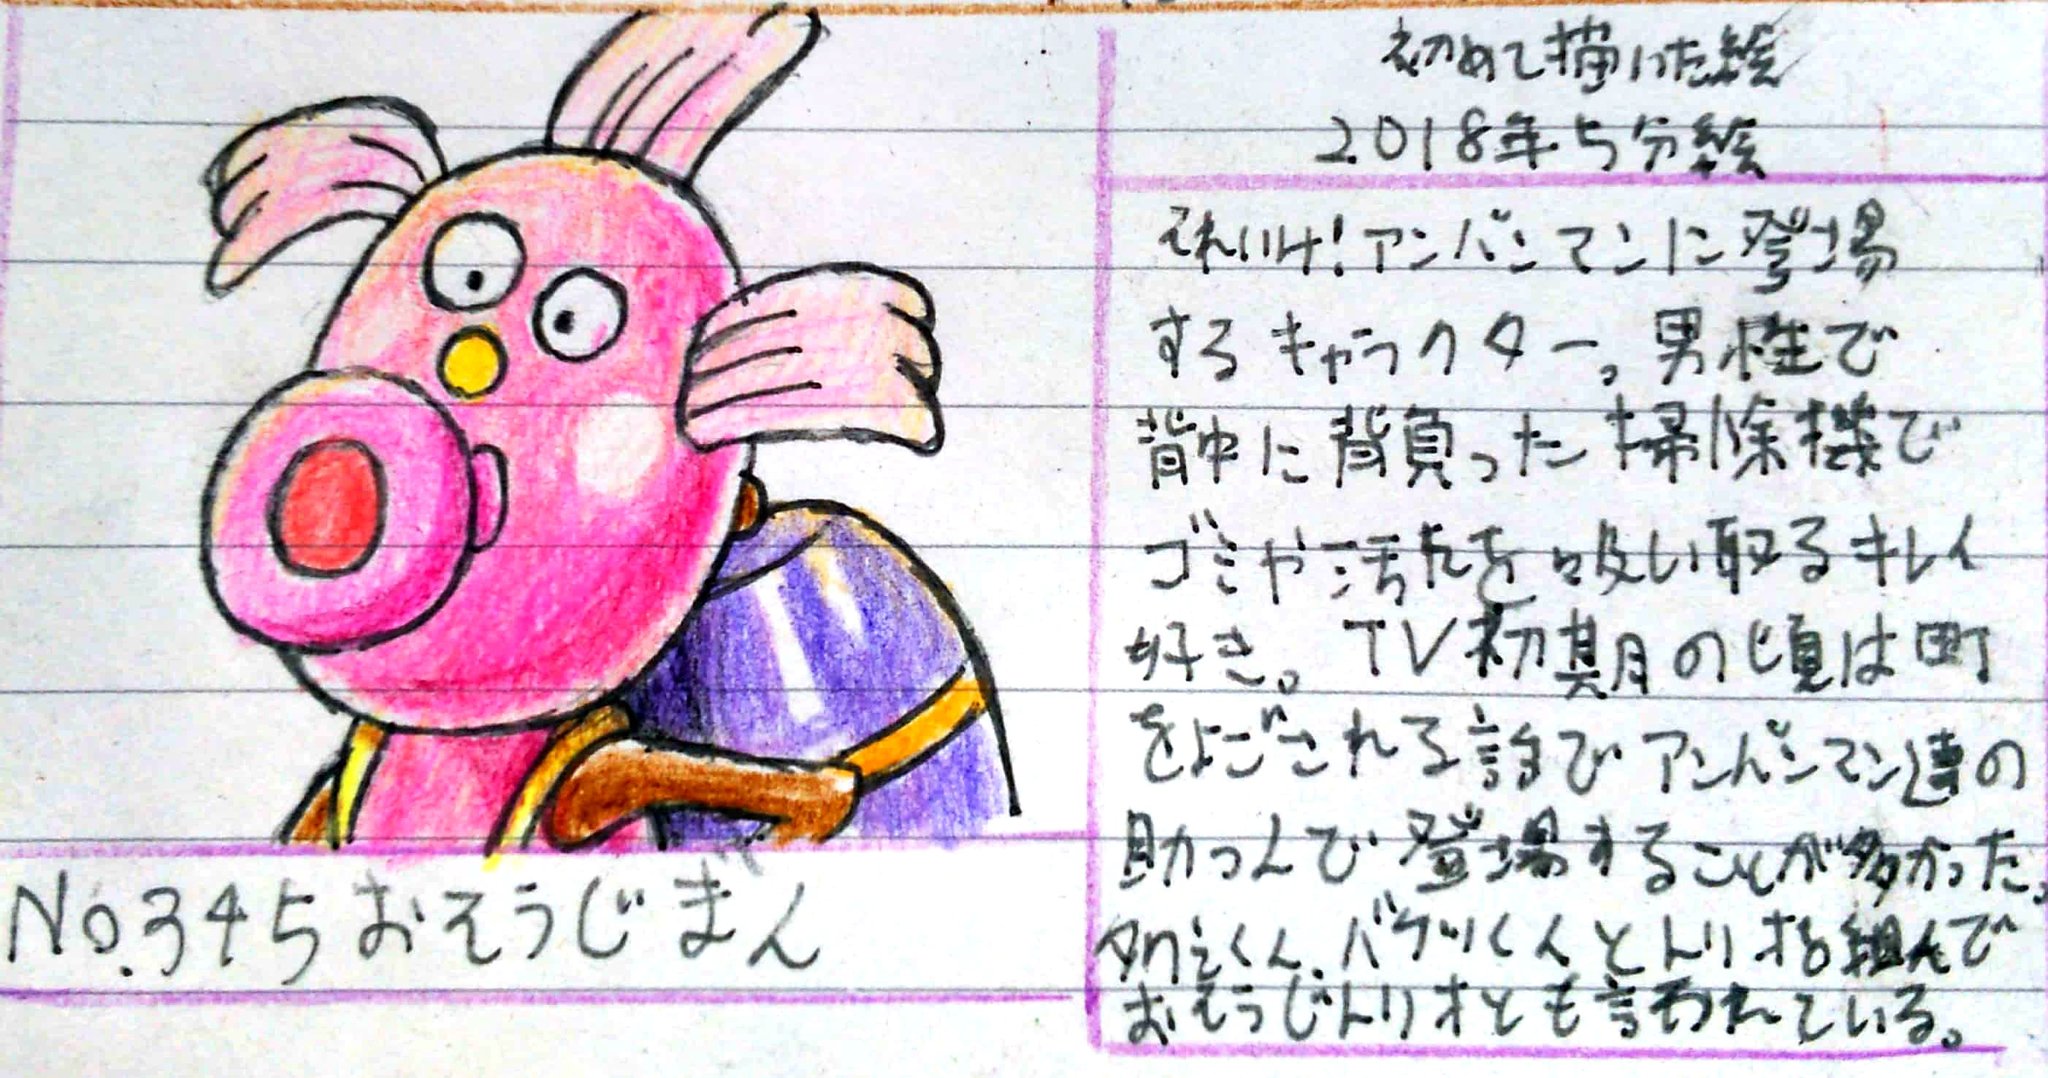 初めて描いた絵
2018年5分絵
それいけ!アンパンマンに登場
するキャラクター。男性で
背中に背負った掃除機で
ゴミや汚れを吸い取るキレイ
好き。TV初期の頃は町
をよごされる話でアンパンマン達の
助っ人で登場することが多かった。
くん、バケツくんとトリオを組んで
おそうじトリオとも言われている。
No.345おそうじまん